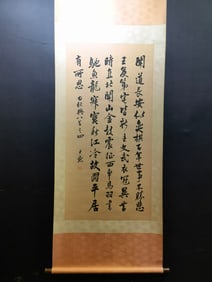 聞道長安似奕棋百年世事不勝悲
王侯第宅皆新主文武衣冠異昔
時直北關山金鼓震征西車馬羽書
馳魚龍寂寞秋江冷故國平居
有所思 秋興八首之四